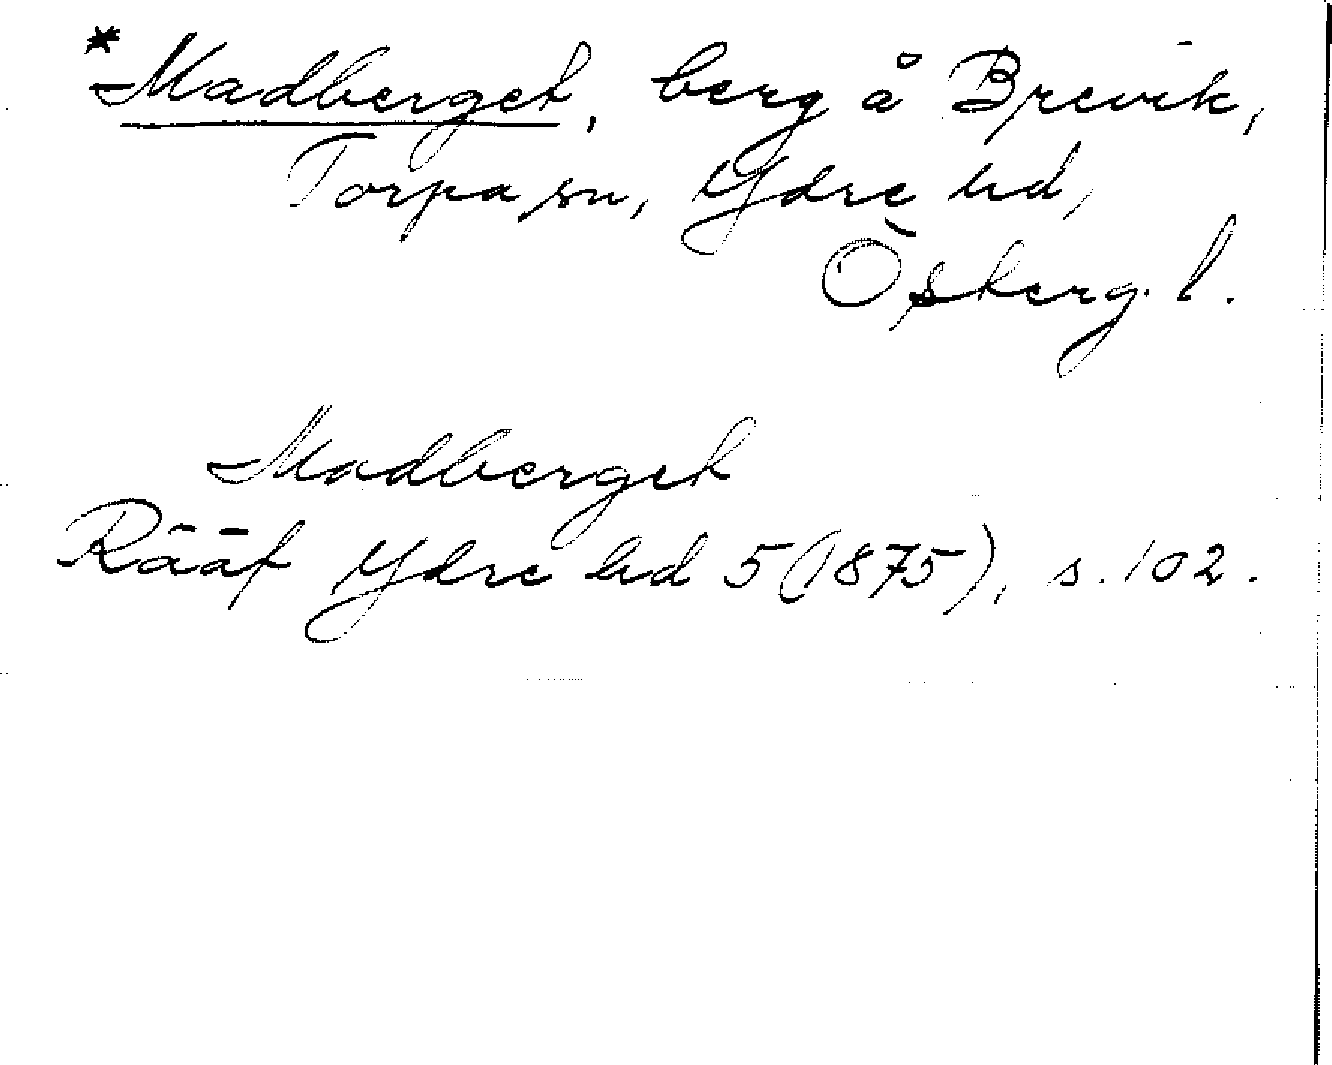 *Madberget, berg å Brevik,
Torpa sn, Ydre hd,
Östergl.
Madberget
Rääf Ydre hd 5 (1875), s. 102.